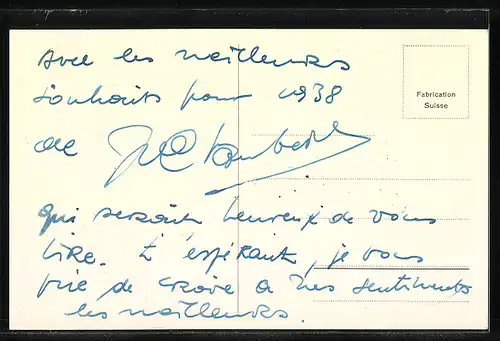 Avec les meilleurs
souhaits pour 1938
de
Fabrication
Suisse
qui serait heureux de vous
lire. L'espérant, je vous
prie de croire à mes sentiments
les meilleurs.